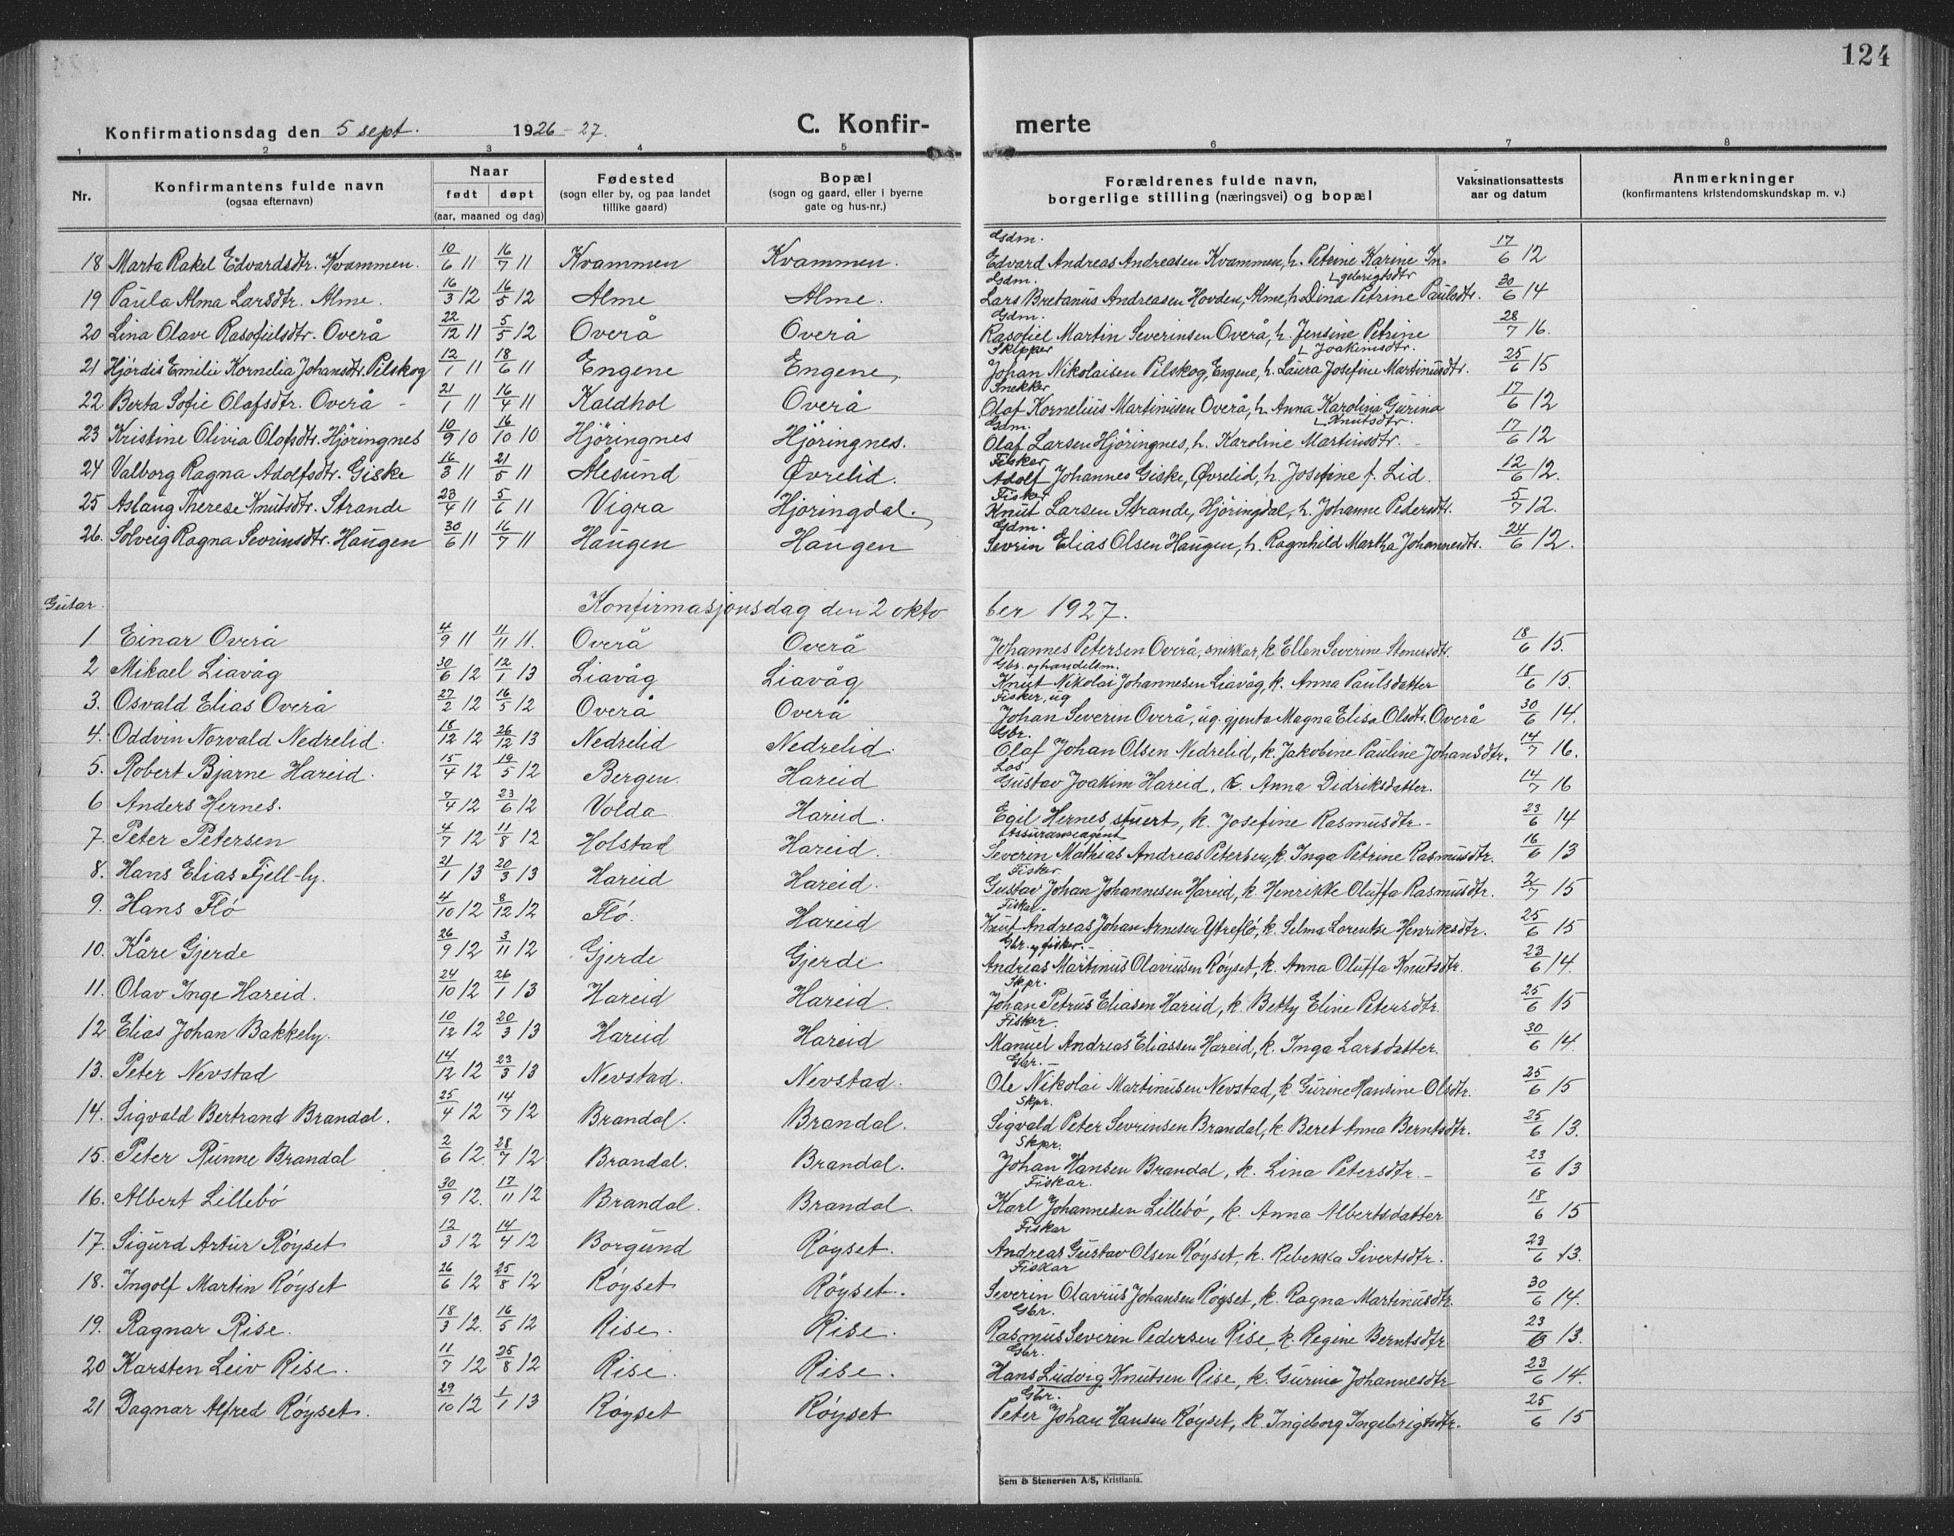 124
Konfirmationsdag den 5 sept. 1926-27. C. Konfir- merte
1 2 3 4 5 6 7 8
Nr. Konfirmantens fulde navn (ogsaa efternavn) Naar født døpt (aar, maaned og dag) Fødested (sogn eller by, og paa landet tillike gaard) Bopæl (sogn og gaard, eller i byerne gate og hus-nr.) Forældrenes fulde navn, borgerlige stilling (næringsvei) og bopæl Vaksinationsattests aar og datum Anmerkninger (konfirmantens kristendomskundskap m. v.)
18 Marta Rakel Edvardsdtr. Kvammen. 10/6 11 16/7 11 Kvammen Kvammen. Gdm. Edvard Andreas Andreasen Kvammen, h. Petrine Karine Ingebrigtsdtr 17/6 12
19 Paula Alma Larsdtr. Alme. 16/3 12 16/5 12 Alme Alme. Gdm. Lars Bretanus Andreasen Hovden, Alme, h. Dina Petrine Paulsdtr. 30/6 14
20 Lina Olave Rasofielsdtr. Overå 22/12 11 5/5 12 Overå Overå Gdm. Rasofiel Martin Severinsen Overå, h. Jensine Petrine Joakimsdtr. 28/7 16.
21 Hjördis Emilie Kornelia Johansdtr. Pilskog 12/1 11 18/6 11 Engene Engene, Skipper Johan Nikolaisen Pilskog, Engene, h. Laura Josefine Martinusdtr. 25/6 15
22 Berta Sofie Olafsdtr. Overå - 21/1 11 16/4 11 Kaldhol Overå Snekker Olaf Kornelius Martinusen Overå, h. Anna Karolina Gurina Knutsdtr. 17/6 12
23 Kristine Olivia Olofsdtr. Hjöringnes 10/9 10 16/10 10 Hjöringnes Hjöringnes. Gdm. Olaf Larsen Hjöringnes, h. Karoline Martinsdtr. 17/6 12
24 Valborg Ragna Adolfsdtr. Giske 16/3 11 21/5 11 Ålesund Øvrelid. Fisker Adolf Johannes Giske, Øvrelid, h. Josefine f. Lid. 12/6 12.
25 Aslaug Therese Knutsdtr. Strande 23/4 11 5/6 11 Vigra Hjöringdal. Fisker Knut Larsen Strande, Hjöringdal, h. Johanne Pedersdtr. 5/7 12.
26. Solveig Ragna Sevrinsdtr. Haugen 30/6 11 16/7 11 Haugen Haugen Gdm. Sevrin Elias Olsen Haugen, h. Ragnhild Martha Johannesdtr. 24/6 12.
Gutar. Konfirmasjonsdag den 2 oktober 1927.
1 Einar Overå 4/9 11 11/11 11. Overå Overå Johannes Petersen Overå, snekkar, k. Ellen Severine Stenersdtr. 18/6 15.
2 Mikael Liavåg 30/6 12 12/1 13 Liavåg Liavåg Gbr. og handelsm. Knut Nikolai Johannesen Liavåg, k. Anna Paulsdatter 18/6 15.
3. Osvald Elias Overå 27/2 12 16/5 12 Overå Overå Fisker, ug Johan Severin Overå, ug. gjenta Magna Elisa Olsdtr. Overå 30/6 14.
4. Oddvin Norvald Nedrelid. 18/12 12 26/12 13 Nedrelid Nedrelid. Gbr. Olaf Johan Olsen Nedrelid, k. Jakobine Pauline Johansdtr. 14/7 16.
5. Robert Bjarne Hareid. 15/4 12 19/5 12 Bergen. Hareid Los Gustav Joakim Hareid, k. Anna Didriksdatter. 14/7 16
6 Anders Hernes. 7/4 12 23/6 12 Volda Hareid. Egil Hernes, stuert, k. Josefine Rasmusdtr - 23/6 14
7. Peter Petersen 4/7 12 11/8 12 Holstad Hareid. Assuranseagent Severin Mathias Andreas Petersen, k. Inga Petrine Rasmusdtr. 16/6 13
8. Hans Elias Fjell-ly. 21/1 13 20/3 13 Hareid Hareid. Fisker. Gustav Johan Johannesen Hareid, k. Henrikke Oluffa Rasmusdtr. 2/7 15
9. Hans Flö 4/10 12 8/12 12 Flö. Hareid Fiskar. Knut Andreas Johan Arnesen Ytreflö, k. Selma Lorentse Henriksdtr. 25/6 15
10. Kåre Gjerde 26/9 12 3/11 12 Gjerde Gjerde. Gbr. og fisker. Andreas Martinus Olaviusen Röyset, k. Anna Oluffa Knutsdtr. 23/6 14.
11. Olav Inge Hareid. 24/10 12 26/1 13 Hareid Hareid. Skpr. Johan Petrus Eliasen Hareid, k. Betty Eline Petersdtr. 25/6 15
12 Elias Johan Bakkely. 10/12 12 20/3 13 Hareid Hareid Fisker. Manuel Andreas Eliassen Hareid, k. Inga Larsdatter. 30/6 14.
13. Peter Nevstad 14/12 12 23/3 13 Nevstad. Nevstad. Gbr. Ole Nikolai Martinusen Nevstad, k. Gurine Hansine Olsdtr. 25/6 15
14. Sigvald Bertrand Brandal. 25/4 12 14/7 12 Brandal. Brandal. Skpr. Sigvald Peter Sevrinsen Brandal, k. Beret Anna Berntsdtr. 25/6 13.
15. Peter Runne Brandal 2/6 12. 28/7 12 Brandal. Brandal. Skpr. Johan Hansen Brandal, k. Lina Petersdtr. - 23/6 13
16. Albert Lillebö 30/9 12. 17/11 12 Brandal. Brandal. Fiskar. Karl Johannesen Lillebö, k. Anna Albertsdatter 18/6 15
17. Sigurd Artur Röyset 12/3 12 14/4 12 Borgund Röyset. Fiskar Andreas Gustav Olsen Röyset, k. Rebekka Sivertsdtr. 23/6 13.
18. Ingolf Martin Röyset 26/6 12 25/8 12 Röyset Röyset. Fiskar Severin Olavius Johansen Röyset, k. Ragna Martinusdtr. 30/6 14.
19. Ragnar Rise. 18/3 12. 16/5 12 Rise. Rise. Gbr. Rasmus Severin Pedersen Rise, k. Regine Berntsdtr. 23/6 13.
20 Karsten Leiv Rise. 11/7 12 25/8 12 Rise. Rise. Gbr. Hans Ludvig Knutsen Rise, k. Gurine Johannesdtr 23/6 14.
21 Dagnar Alfred Röyset. 29/10 12 1/1 13 Röyset Röyset Gbr. Peter Johan Hansen Röyset, k. Ingeborg Ingebrigtsdtr. 25/6 15
Sem & Stenersen A/S, Kristiania.